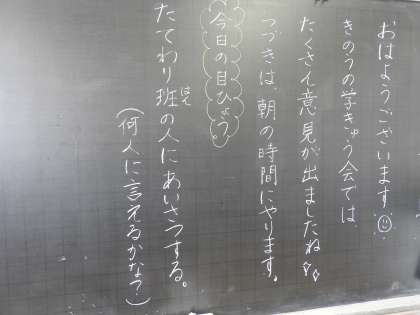 おはようございます
きのうの学きゅう会では、
たくさん意見が出ましたね
つづきは、朝の時間にやります。
今日の目ひょう
たてわり班の人にあいさつする。
はん
(何人に言えるかな?)